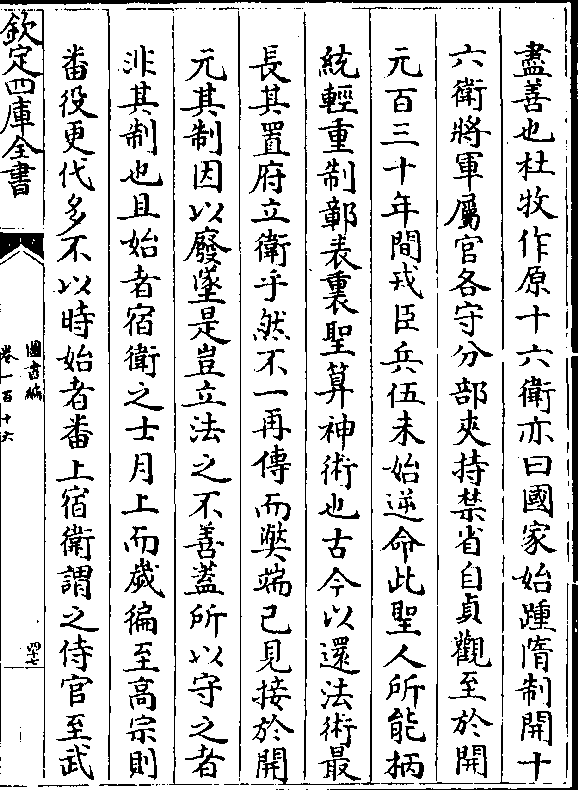 盡善也杜牧作原十六衛亦曰國家始踵隋制開十
六衛將軍屬官各守分部夾持禁省自貞觀至於開
元百三十年間戎臣兵伍未始逆命此聖人所能柄
統輕重制鄣表裏聖算神術也古今以還法術最
長其置府立衛乎然不一再傳而弊端已見接於開
元其制因以廢墜是豈立法之不善葢所以守之者
非其制也且始者宿衛之士月上而歲徧至高宗則
番役更代多不以時始者番上宿衛謂之侍官至武
欽定四庫全書
圖書編
卷一百十六
四十七